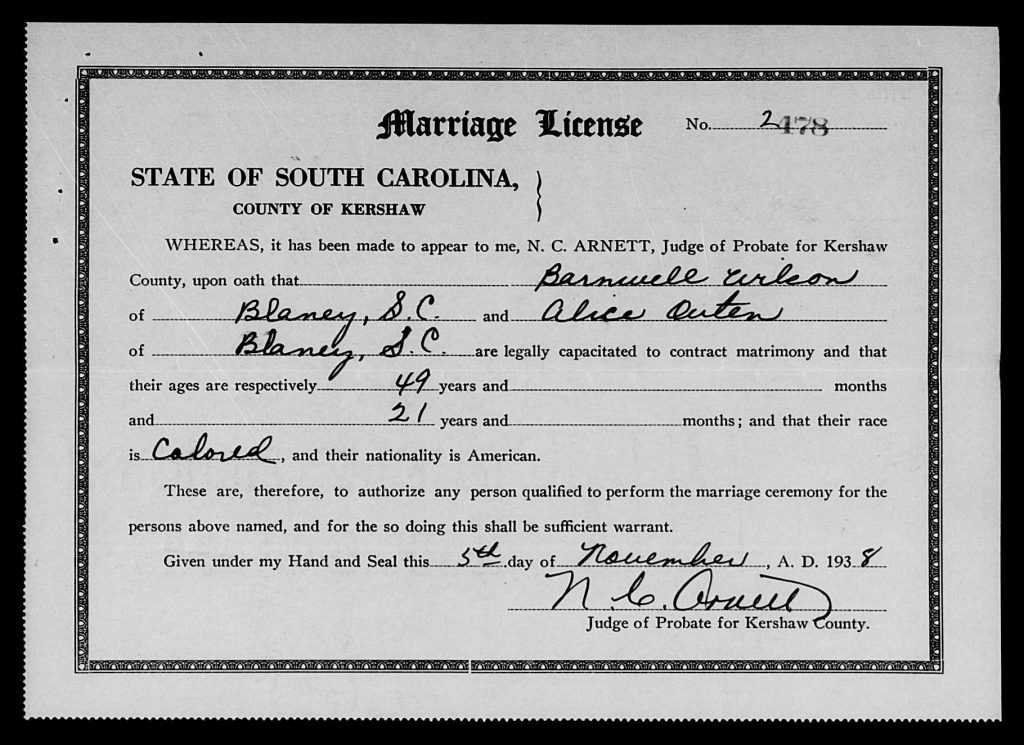 Marriage License No. 2478
STATE OF SOUTH CAROLINA,
COUNTY OF KERSHAW
WHEREAS, it has been made to appear to me, N. C. ARNETT, Judge of Probate for Kershaw
County, upon oath that Barnwell Wilson
of Blaney, S.C. and Alice Outen
of Blaney, S.C. are legally capacitated to contract matrimony and that
their ages are respectively 49 years and months
and 21 years and months; and that their race
is Colored, and their nationality is American.
These are, therefore, to authorize any person qualified to perform the marriage ceremony for the
persons above named, and for the so doing this shall be sufficient warrant.
Given under my Hand and Seal this 5th day of November, A. D. 1938
N. C. Arnett
Judge of Probate for Kershaw County.